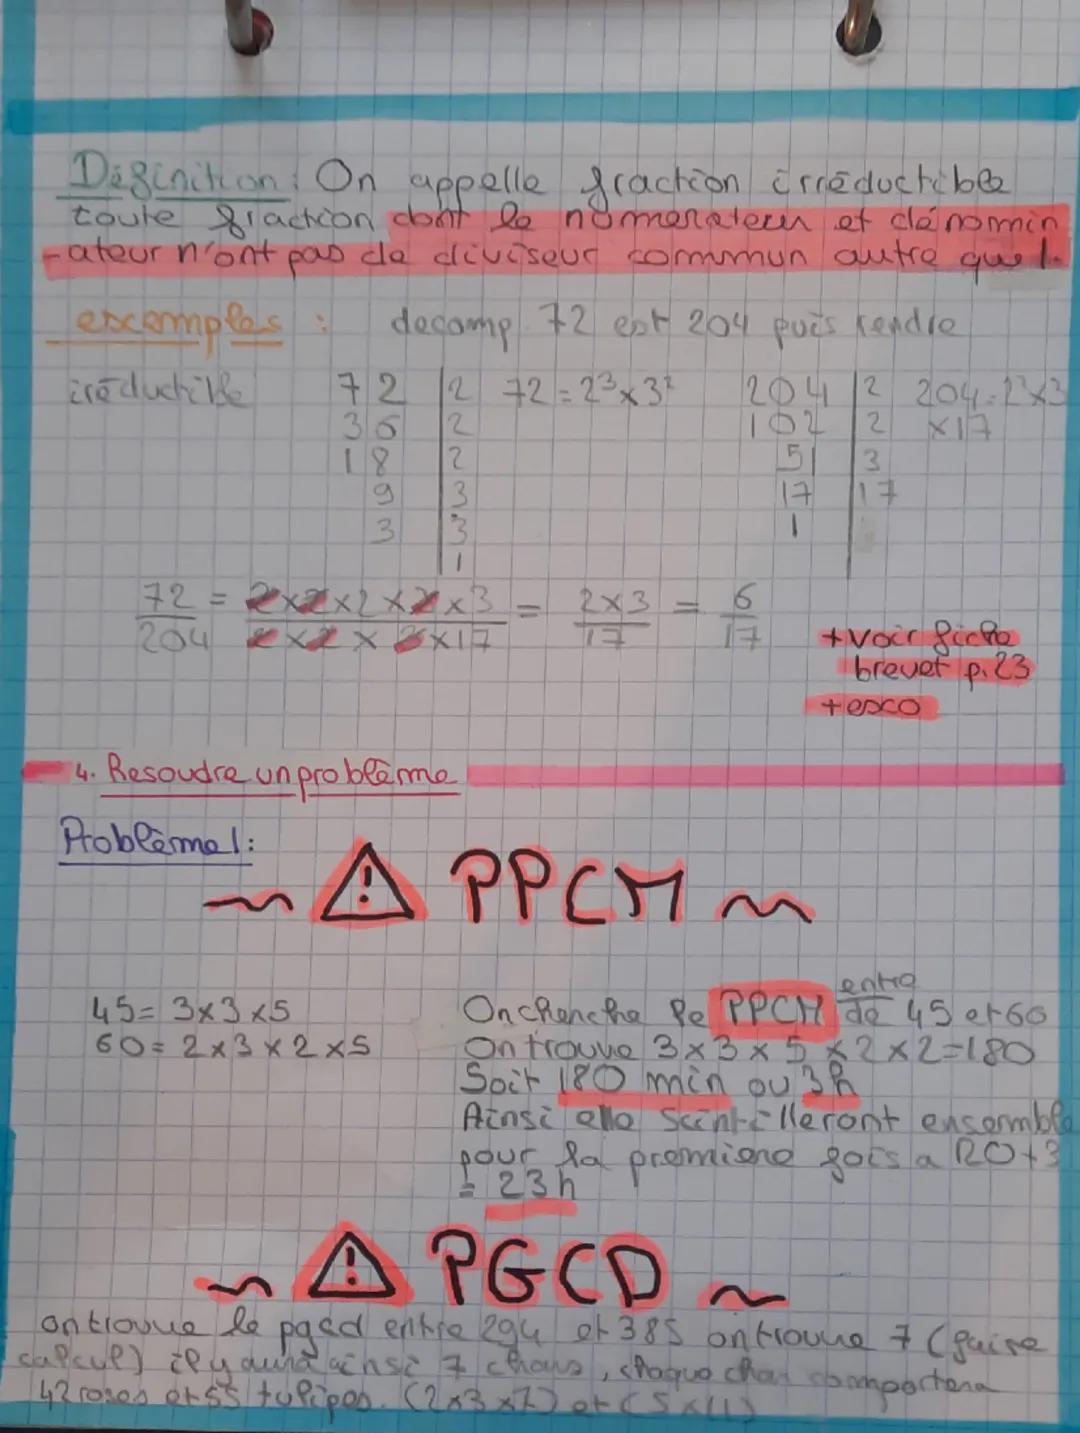 Définition : On appelle fraction irréductible
toute fraction dont le numerateur et dénomin
-ateur n'ont pas de diviseur commun autre que 1.
excemples : decomp 72 est 204 puis rendre
iréductible 72 | 2 72 = 2³ x 3² 204 | 2 204 = 2² x 3
36 | 2 102 | 2 x 17
18 | 2 51 | 3
9 | 3 17 | 17
3 | 3 1
1
72/204 = 2 x 2 x 2 x 3 x 3 / 2 x 2 x 3 x 17 = 2 x 3 / 17 = 6/17
+ voir fiche
brevet p.23
+ exco
4. Resoudre un problème
Problème 1 :
~ ⚠ PPCM ~
45 = 3 x 3 x 5
60 = 2 x 3 x 2 x 5
On cherche le PPCM entre de 45 et 60
On trouve 3 x 3 x 5 x 2 x 2 = 180
Soit 180 min ou 3h
Ainsi elle scintilleront ensemble
pour la premiere fois a 20 + 3
= 23h
~ ⚠ PGCD ~
on trouve le pgcd entre 294 et 385 on trouve 7 (faire
calcul) il y aura ainsi 7 chars, chaque char comportera
42 roses et 55 tulipes. (2 x 3 x 7) et (5 x 11)